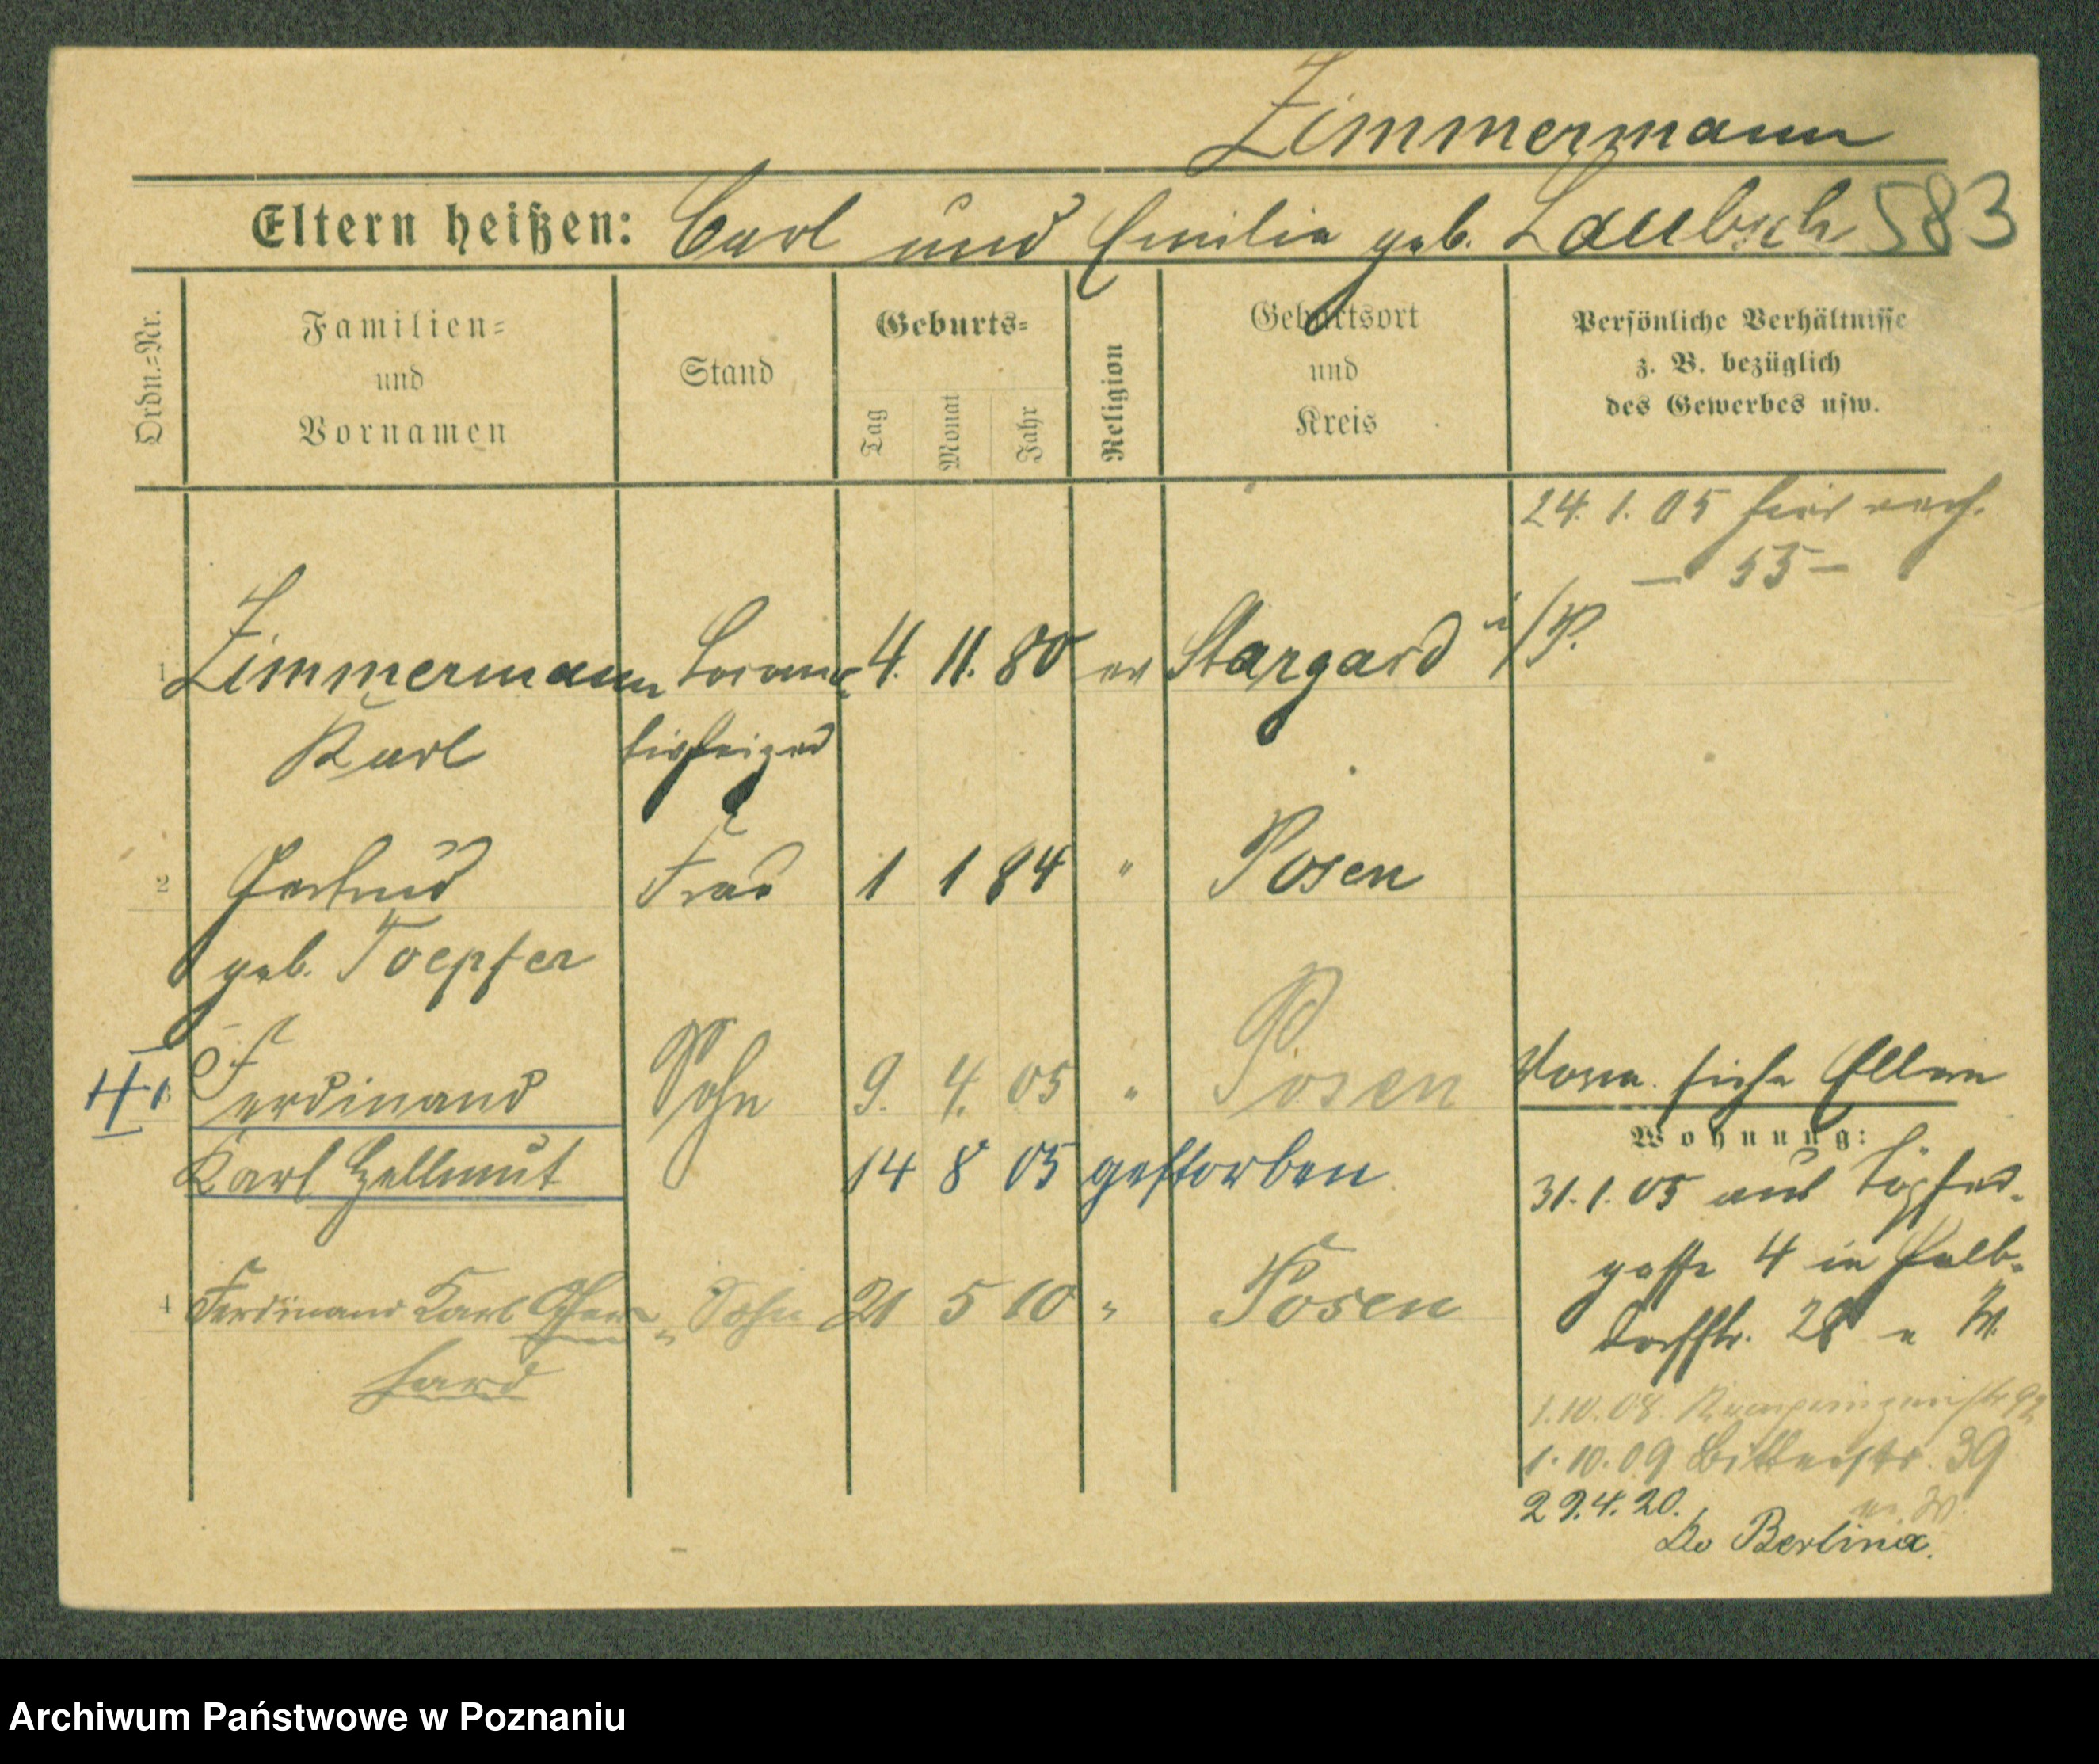 Zimmermann
Eltern heißen: Carl und Emilie geb. Laubsch 583
Ordn.=Nr.
Familien=
und
Vornamen
Stand
Geburts=
Tag
Monat
Jahr
Religion
Geburtsort
und
Kreis
Persönliche Verhältnisse
z. B. bezüglich
des Gewerbes usw.
24. 1. 05 hier
— 55 —
1 Zimmermann 4. 11. 80 ev Stargard i/P.
Karl
2 Gertrud Frau 1 1 84 " Posen
geb. Toepfer
3 Ferdinand Sohn 9. 4. 05 " Posen siehe Eltern
Karl Hellmut 14 8 05 gestorben
Wohnung:
31. 1. 05 aus Töpfer-
gasse 4 in Kalb-
dorfstr. 28
4 Ferdinand Karl Ger- Sohn 21 5 10 " Posen
hard
1.10.08
1.10.09 39
29.4.20.
Do Berlina.
Archiwum Państwowe w Poznaniu